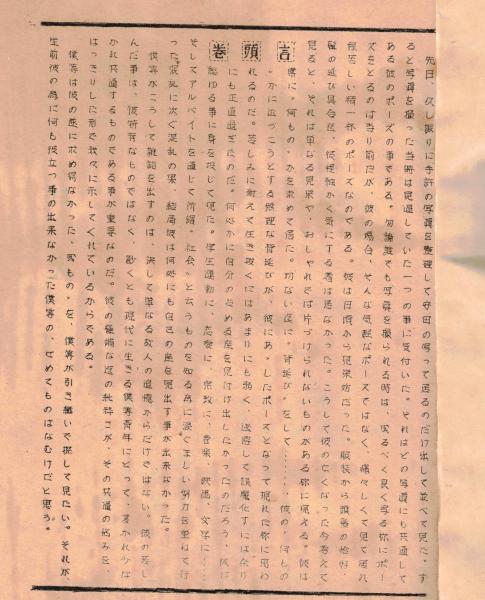 巻頭言
先日、久し振りに手許の写真を整理して守田の写って居るのだけ出して並べて見た。す
ると写真を撮った当時は見過していた一つの事に気付いた。それはどの写真にも共通して
ある彼のポーズの事である。勿論誰でも写真を撮られる時は、成るべく良く写る様にポー
ズをとるのは当り前だが、彼の場合、そんな気軽なポーズではなく、痛々しくて見て居れ
程苦しい精一杯のポーズなのである。彼は日頃から見栄坊だった。服装から頭髪の恰好
の延び具合迄、彼程細かく気にする者は居なかった。こうして彼の亡くなった今考えて
見ると、それは単なる見栄や、おしゃれでは片づけられないものがある様に思える。彼は
常に"何もの"かを求めて居た。切ない迄に"背延び"をして……、彼の"何もの
"かに近づこうとする無理な背延びが、彼にあゝしたポーズとなって現れた様に思わ
れるのだ。苦しみに耐えて生き抜くにはあまりにも弱く、逃避して誤魔化すには余り
にも正直過ぎたのだ。何処かに自分の占める座を見付け出したかったのだろう、彼は
ゆる事に身を投じて見た。学生運動に、恋愛に、宗教に、音楽、映画、文学に……
そしてアルバイトを通じて所謂"社会"と云うものを知る為に涙ぐましい努力を重ねて行
った。混乱に次ぐ混乱の果、結局彼は何処にも自己の座を見出す事が出来なかった。
僕等がこうして雑誌を出すのは、決して単なる故人の追憶からだけではない。彼の苦し
んだ事は、彼特有なものではなく、尠くとも現代に生きる僕等青年にとって、多かれ少な
かれ共通するものである事が重要なのだ。彼の極端な迄の純粋さが、その共通の悩みを、
はっきりした形で我々に示してくれているからである。
僕等は彼の遂に求め得なかった"或もの"を、僕等が引き継いで探して見たい。それが、
生前彼の為に何も役立つ事の出来なかった僕等の、せめてものはなむけだと思う。